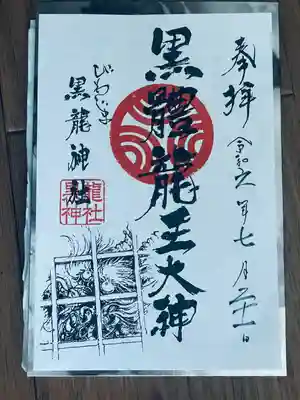 奉拝
令和六年七月二十一日
黒體龍王大神
びわじま
黒龍神社
黒龍
神社